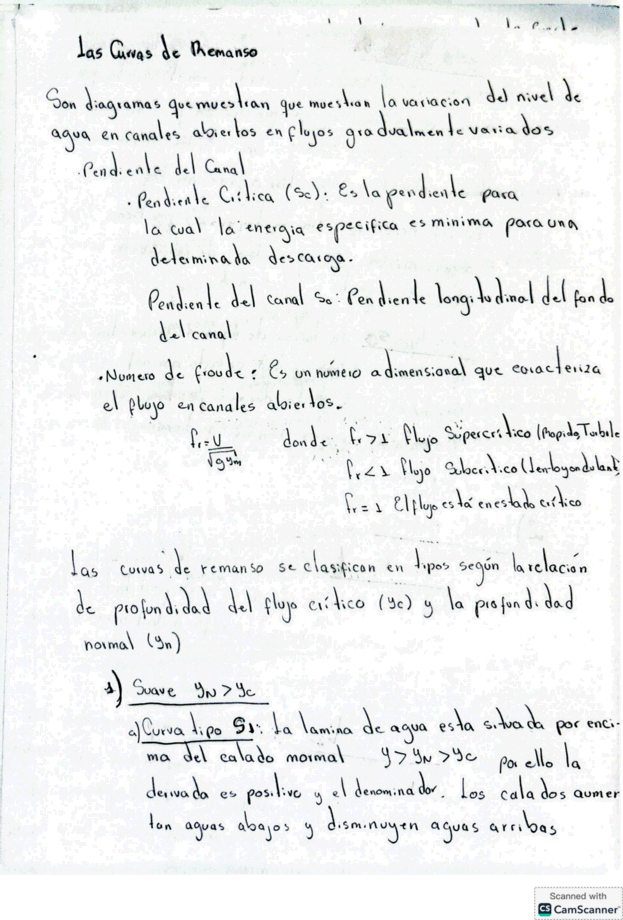 Las Curvas de Remanso
Son diagramas que muestran que muestran la variacion del nivel de
agua en canales abiertos en flujos gradualmente variados
·Pendiente del Canal
·Pendiente Crítica (Sc): Es la pendiente para
la cual la energia especifica es minima para una
determinada descarga.
Pendiente del canal So: Pendiente longitudinal del fondo
del canal
·Numero de froude: Es un número adimensional que caracteriza
el flujo en canales abiertos.
fr = U / √g ym donde fr > 1 flujo Supercrítico (Rapido, Turbule
fr < 1 flujo Subcritico (lento y ondulant
fr = 1 El flujo está en estado crítico
Las curvas de remanso se clasifican en tipos según la relación
de profundidad del flujo crítico (yc) y la profundidad
normal (yn)
1) Suave yN > yc
a) Curva tipo S1: La lamina de agua esta situada por enci-
ma del calado normal y > yN > yc por ello la
derivada es positivo y el denominador. Los calados aumen
tan aguas abajos y disminuyen aguas arribas
Scanned with
CS CamScanner